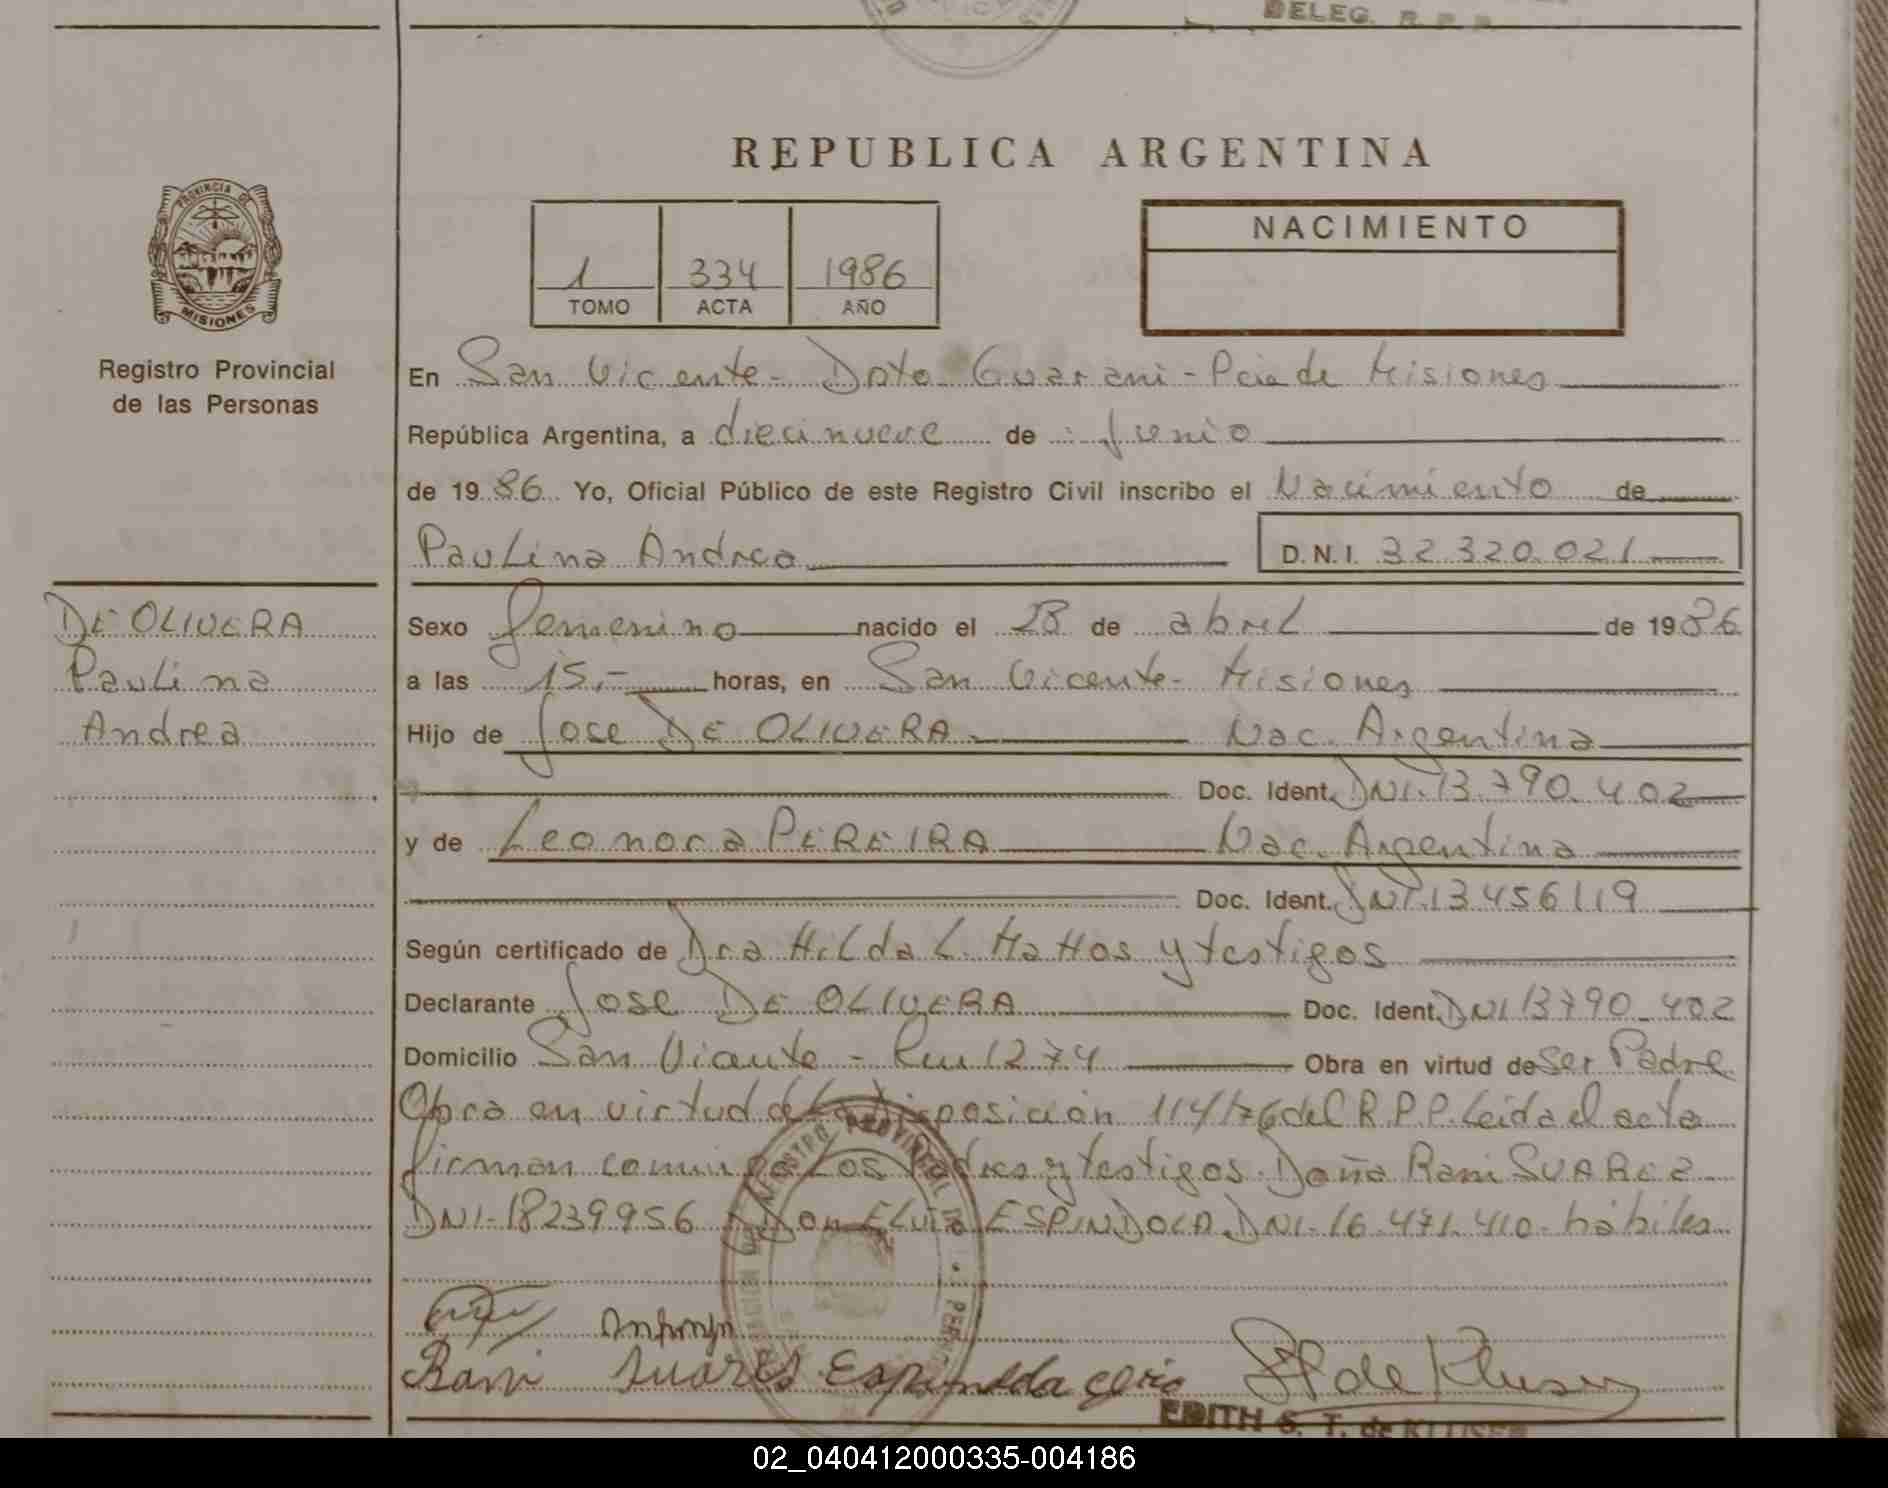 DELEG. R. P. P.
REPUBLICA ARGENTINA
PROVINCIA DE
MISIONES
Registro Provincial
de las Personas
1 334 1986
TOMO ACTA AÑO
NACIMIENTO
En San Vicente - Dpto Guarani - Pcia de Misiones
República Argentina, a diecinueve de Junio
de 1986 Yo, Oficial Público de este Registro Civil inscribo el Nacimiento de
Paulina Andrea D.N.I. 32.320.021
DE OLIVERA
Paulina
Andrea
Sexo femenino nacido el 28 de abril de 1986
a las 15.- horas, en San Vicente - Misiones
Hijo de Jose DE OLIVERA Nac. Argentina
Doc. Ident. DNI. 13.790.402
y de Leonora PEREIRA Nac. Argentina
Doc. Ident. DNI. 13456119
Según certificado de Dra Hilda L. Mattos y testigos
Declarante Jose DE OLIVERA Doc. Ident. DNI 13790.402
Domicilio San Vicente - Km 1274 Obra en virtud de ser Padre
Obra en virtud de la disposición 114/76 del R.P.P. Leida el acta
firman conmigo los padres y testigos. Doña Rani SUAREZ
DNI-18239956 y Don ELVIO ESPINDOLA DNI-16.471.410- hábiles
Rani Suares Espindola
EDITH S. T. de KLUSER
02_040412000335-004186